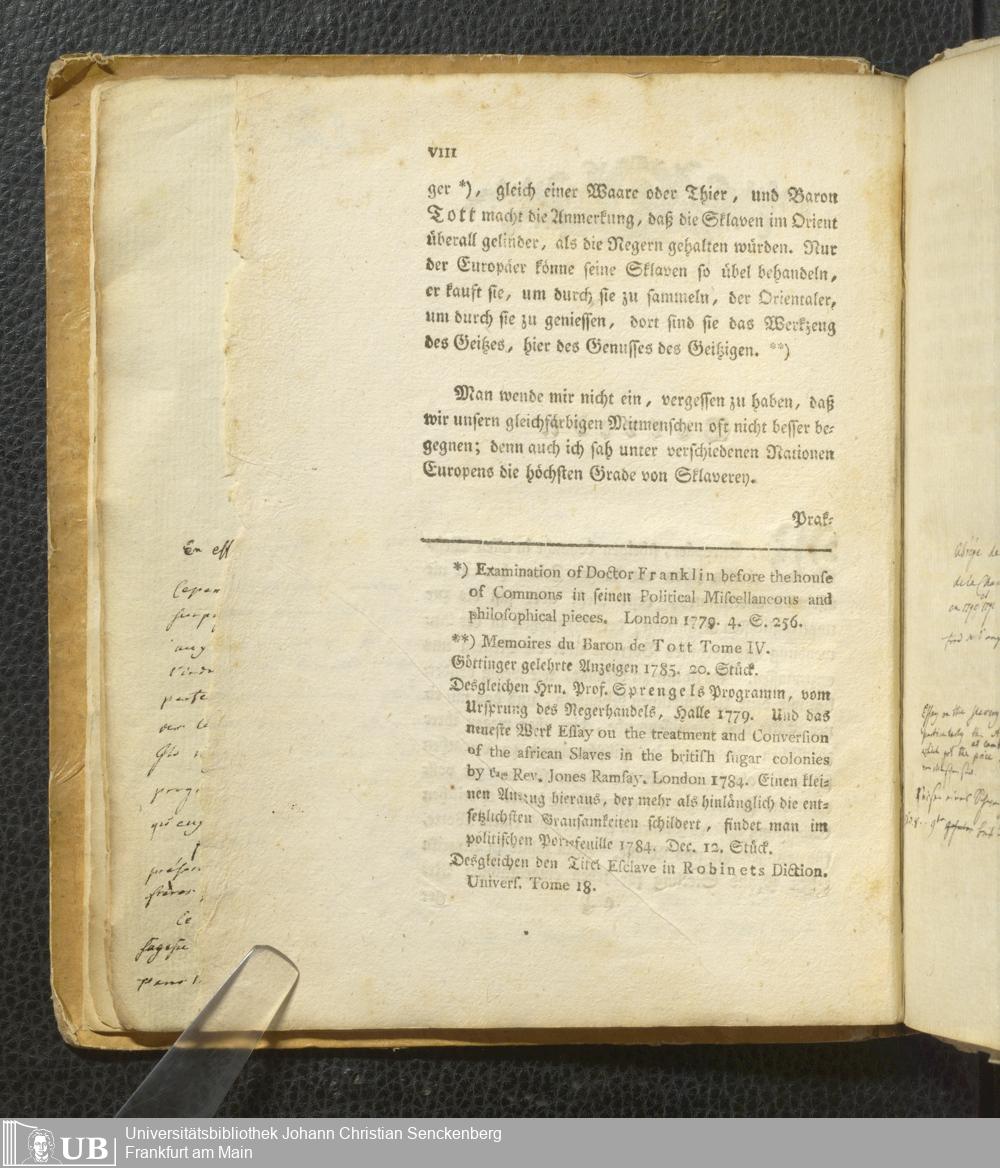 VIII
ger *), gleich einer Waare oder Thier, und Baron
Tott macht die Anmerkung, daß die Sklaven im Orient
überall gelinder, als die Negern gehalten würden. Nur
der Europäer könne seine Sklaven so übel behandeln,
er kauft sie, um durch sie zu sammeln, der Orientaler,
um durch sie zu geniessen, dort sind sie das Werkzeug
des Geitzes, hier des Genusses des Geitzigen. **)
Man wende mir nicht ein, vergessen zu haben, daß
wir unsern gleichfärbigen Mitmenschen oft nicht besser be-
gegnen; denn auch ich sah unter verschiedenen Nationen
Europens die höchsten Grade von Sklaverey.
Prak-
*) Examination of Doctor Franklin before the house
of Commons in seinen Political Miscellaneous and
philosophical pieces. London 1779. 4. S. 256.
**) Memoires du Baron de Tott Tome IV.
Göttinger gelehrte Anzeigen 1785. 20. Stück.
Desgleichen Hrn. Prof. Sprengels Programm, vom
Ursprung des Negerhandels, Halle 1779. Und das
neueste Werk Essay ou the treatment and Conversion
of the african Slaves in the british sugar colonies
by the Rev. Jones Ramsay. London 1784. Einen klei-
nen Auszug hieraus, der mehr als hinlänglich die ent-
setzlichsten Grausamkeiten schildert, findet man im
politischen Portefeuille 1784. Dec. 12. Stück.
Desgleichen den Titel Esclave in Robinets Diction.
Univers. Tome 18.
En eff
ce
UB
Universitätsbibliothek Johann Christian Senckenberg
Frankfurt am Main